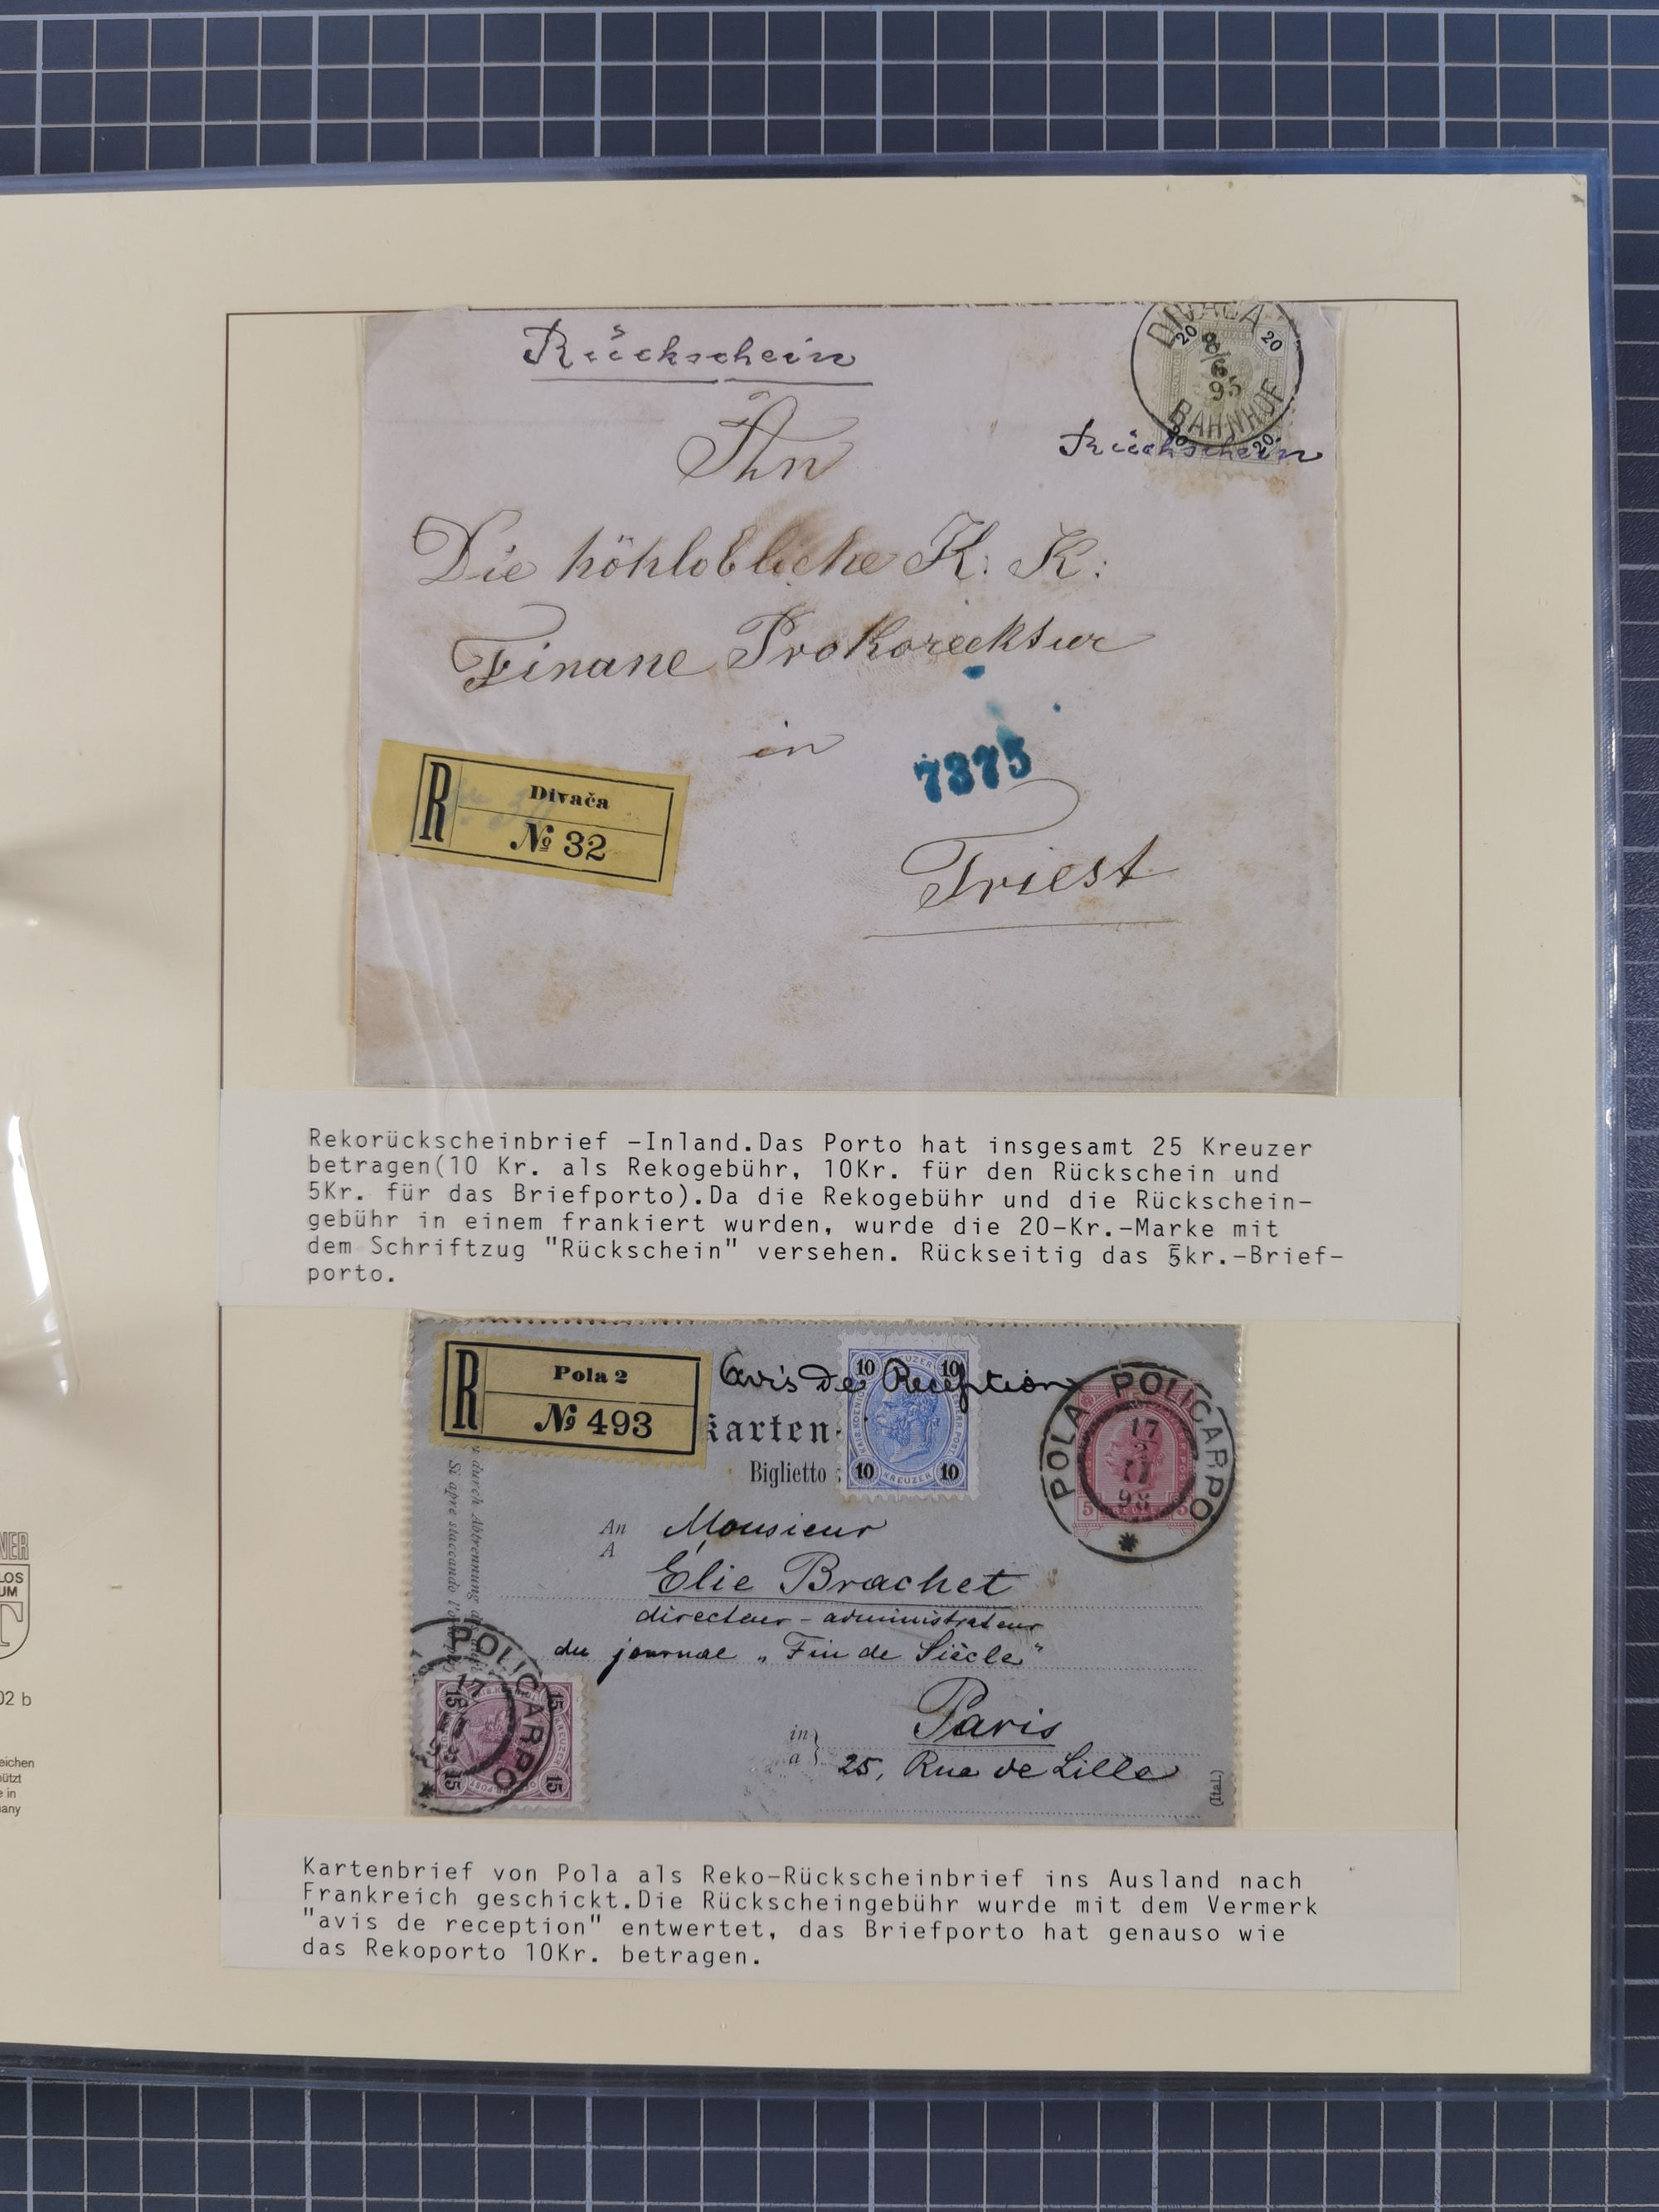 Rückschein
DIVAČA
20 20
8/6
95
BAHNHOF
20 20
Rückschein
An
Die höhlobliche K: K:
Financ Prokorecktur
in
7375
R
Divača
№ 32
Triest
Rekorückscheinbrief -Inland.Das Porto hat insgesamt 25 Kreuzer
betragen(10 Kr. als Rekogebühr, 10Kr. für den Rückschein und
5Kr. für das Briefporto).Da die Rekogebühr und die Rückschein-
gebühr in einem frankiert wurden, wurde die 20-Kr.-Marke mit
dem Schriftzug "Rückschein" versehen. Rückseitig das 5kr.-Brief-
porto.
R
Pola 2
№ 493
Avis de Reception
10 KREUZER 10
10 KREUZER 10
karten-
Biglietto
POLA POLICARPO
17
11
98
5 5
durch Abtrennung
Si apre staccando l'
An Monsieur
A
Élie Brachet
directeur - administrateur
du journal „Fin de Siècle"
POLICARPO
17
15 15
15 15
in
a
Paris
25, Rue de Lille
(Ital.)
Kartenbrief von Pola als Reko-Rückscheinbrief ins Ausland nach
Frankreich geschickt.Die Rückscheingebühr wurde mit dem Vermerk
"avis de reception" entwertet, das Briefporto hat genauso wie
das Rekoporto 10Kr. betragen.
NER
LOS
UM
T
02 b
eichen
ützt
e in
any